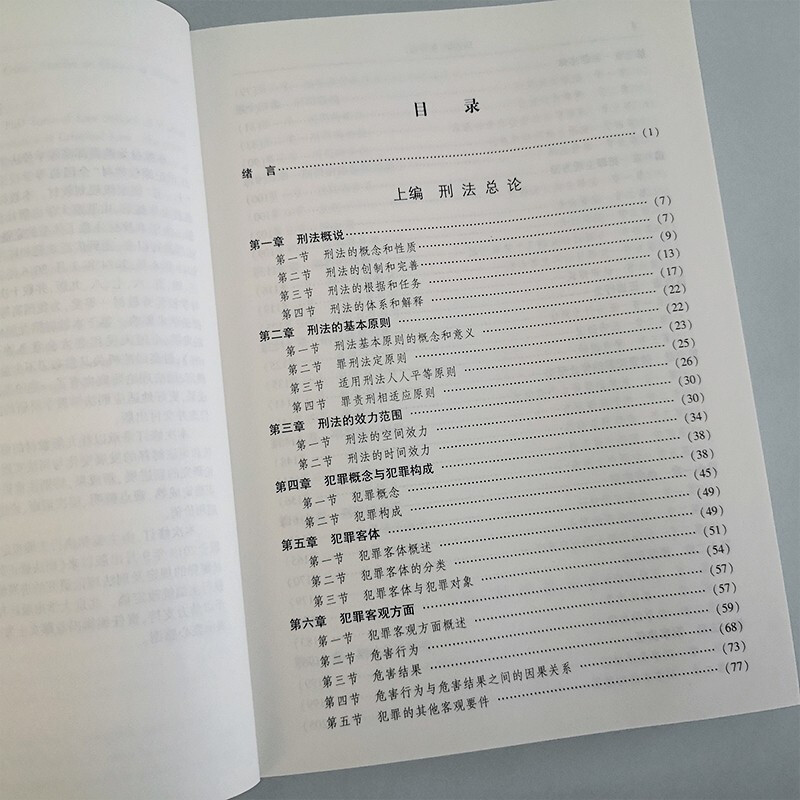 目 录
绪 言……(1)
上编 刑法总论
第一章 刑法概说……(7)
第一节 刑法的概念和性质……(7)
第二节 刑法的创制和完善……(9)
第三节 刑法的根据和任务……(13)
第四节 刑法的体系和解释……(17)
第二章 刑法的基本原则……(22)
第一节 刑法基本原则的概念和意义……(22)
第二节 罪刑法定原则……(23)
第三节 适用刑法人人平等原则……(25)
第四节 罪责刑相适应原则……(26)
第三章 刑法的效力范围……(30)
第一节 刑法的空间效力……(30)
第二节 刑法的时间效力……(34)
第四章 犯罪概念与犯罪构成……(38)
第一节 犯罪概念……(38)
第二节 犯罪构成……(45)
第五章 犯罪客体……(49)
第一节 犯罪客体概述……(49)
第二节 犯罪客体的分类……(51)
第三节 犯罪客体与犯罪对象……(54)
第六章 犯罪客观方面……(57)
第一节 犯罪客观方面概述……(57)
第二节 危害行为……(59)
第三节 危害结果……(68)
第四节 危害行为与危害结果之间的因果关系……(73)
第五节 犯罪的其他客观要件……(77)